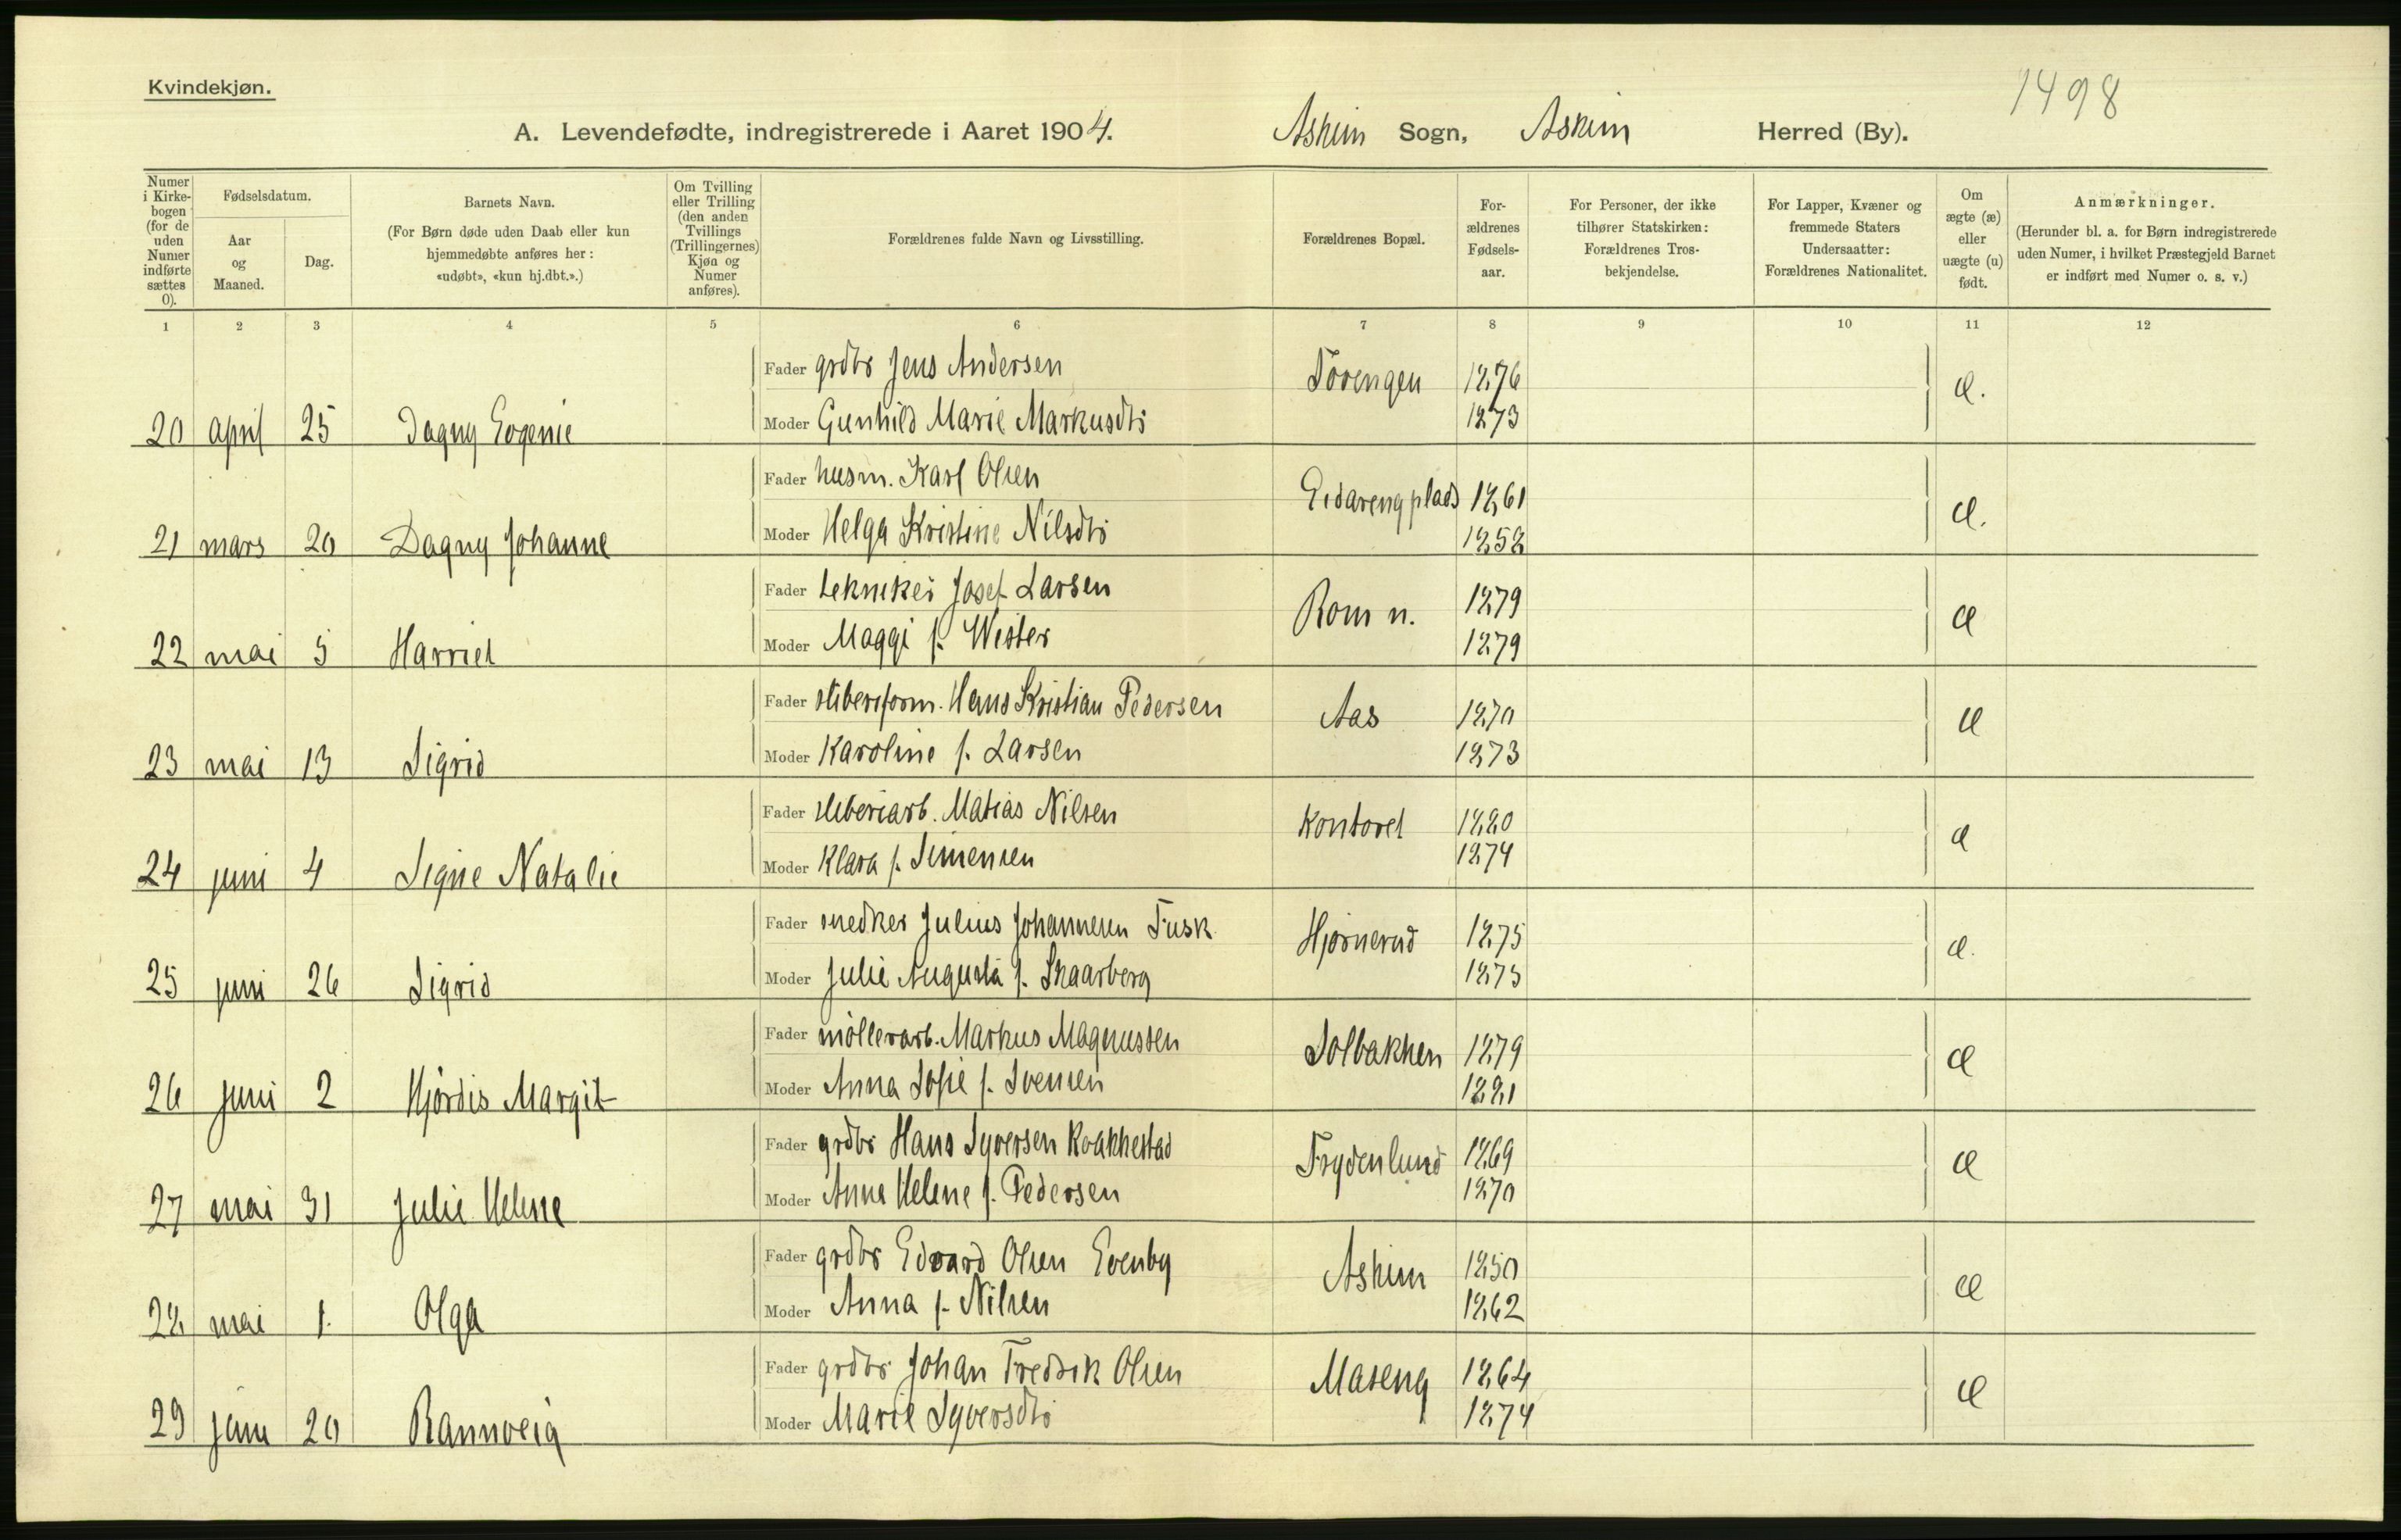 Kvindekjøn.
1498
A. Levendefødte, indregistrerede i Aaret 1904. Askim Sogn, Askim Herred (By).
Numer i Kirkebogen (for de uden Numer indførte sættes 0).
Fødselsdatum.
Aar og Maaned.
Dag.
Barnets Navn.
(For Børn døde uden Daab eller kun hjemmedøbte anføres her: «udøbt», «kun hj.dbt.».)
Om Tvilling eller Trilling (den anden Tvillings (Trillingernes) Kjøn og Numer anføres).
Forældrenes fulde Navn og Livsstilling.
Forældrenes Bopæl.
Forældrenes Fødselsaar.
For Personer, der ikke tilhører Statskirken: Forældrenes Trosbekjendelse.
For Lapper, Kvæner og fremmede Staters Undersaatter: Forældrenes Nationalitet.
Om ægte (æ) eller uægte (u) født.
Anmærkninger.
(Herunder bl. a. for Børn indregistrerede uden Numer, i hvilket Præstegjeld Barnet er indført med Numer o. s. v.)
1 2 3 4 5 6 7 8 9 10 11 12
Fader grdbr Jens Andersen Tovengen 1876 æ.
20 april 25 Dagny Evgenie Moder Gunhild Marie Markusdtr 1873
Fader husm. Karl Olsen Eidarengplads 1861 æ.
21 mars 20 Dagny Johanne Moder Helga Kristine Nilsdtr 1858
Fader tekniker Josef Larsen Rom n. 1879 æ
22 mai 5 Harriet Moder Maggi f. Wister 1879
Fader sliberiform. Hans Kristian Pedersen Aas 1870 æ
23 mai 13 Sigrid Moder Karoline f. Larsen 1873
Fader sliberiarb. Matias Nilsen Kontoret 1880 æ
24 juni 4 Signe Natalie Moder Klara f. Simensen 1874
Fader snedker Julius Johannesen Fusk Hjørnerud 1875 æ.
25 juni 26 Sigrid Moder Julie Augusta f. Skaarberg 1875
Fader møllerarb. Markus Magnussen Solbakken 1879 æ
26 juni 2 Hjørdis Margit Moder Anna Sofie f. Svensen 1881
Fader grdbr Hans Syversen Kvakkestad Frydenlund 1869 æ
27 mai 31 Julie Helene Moder Anne Helene f. Pedersen 1870
Fader grdbr Edvard Olsen Evenby Askim 1850 æ
28 mai 1. Olga Moder Anna f. Nilsen 1862
Fader grdbr Johan Fredrik Olsen Maseng 1864 æ
29 juni 20 Rannveig Moder Marie Syversdtr 1874